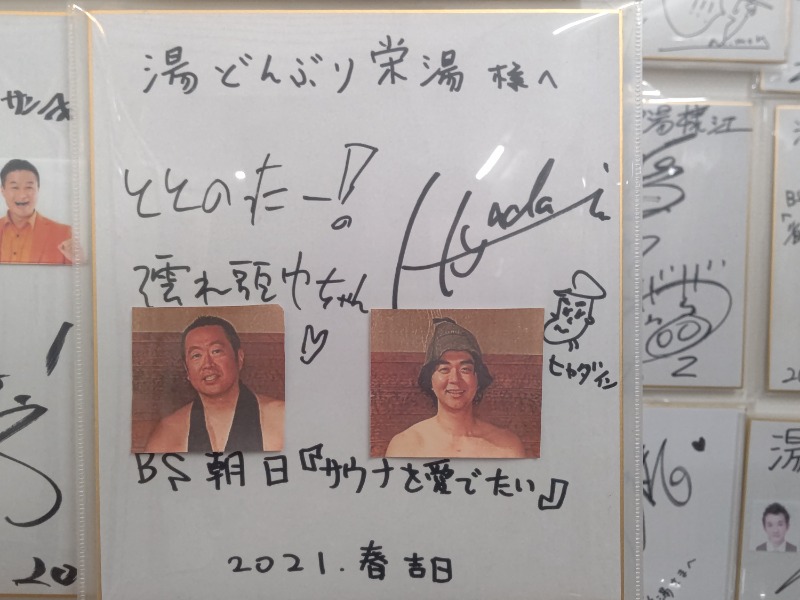 湯どんぶり栄湯 様へ
ととのったー!
Hyadain
濡れ頭巾ちゃん
ヒャダイン
BS朝日『サウナを愛でたい』
2021.春吉日
湯様江